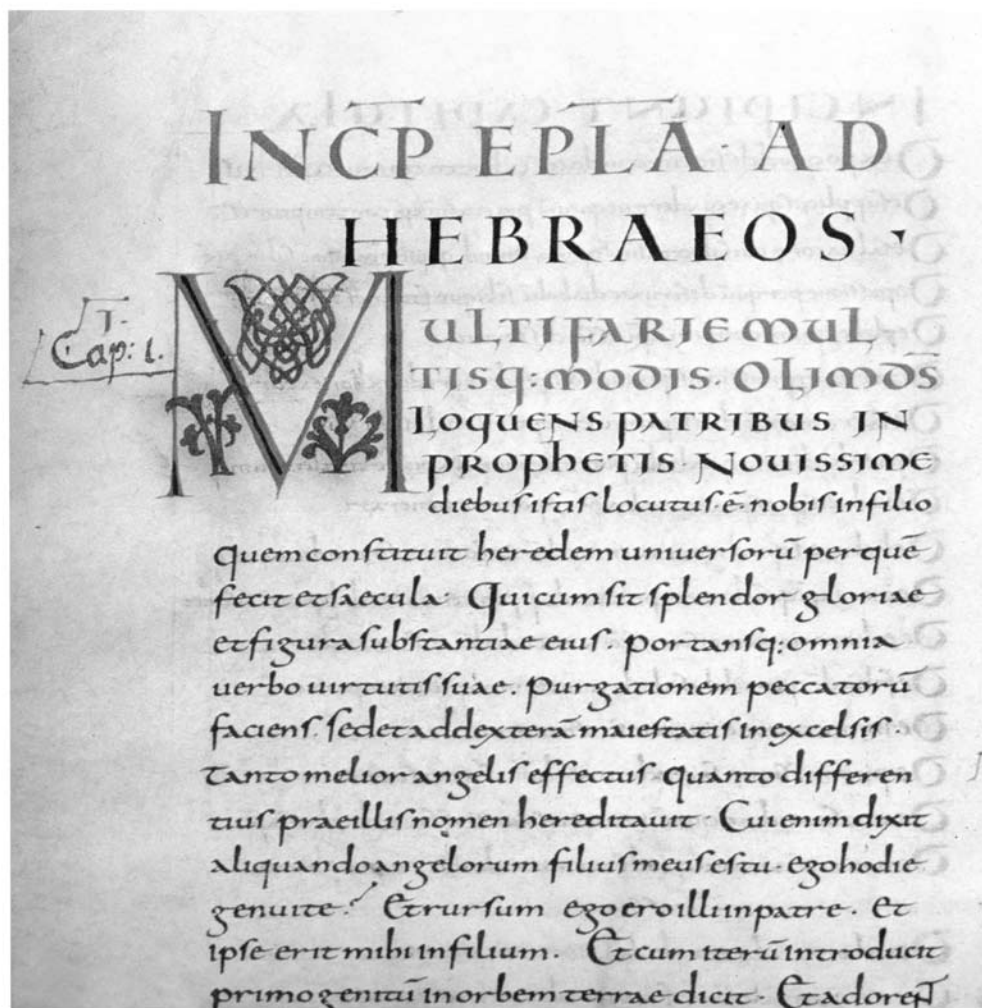 INCP EPLĀ · AD
HEBRAEOS ·
1.
Cap: 1.
MULTIFARIE MUL
TISQ: MODIS OLIM DS̄
LOQUENS PATRIBUS IN
PROPHETIS NOUISSIME
diebus istis locutus · ē · nobis in filio
quem constituit heredem uniuersorū per quē
fecit et saecula · Qui cum sit splendor gloriae
et figura substantiae eius · portansq: omnia
uerbo uirtutis suae · purgationem peccatorū
faciens · sedet ad dexterā maiestatis in excelsis ·
Tanto melior angelis effectus quanto differen
tius prae illis nomen hereditauit · Cui enim dixit
aliquando angelorum filius meus es tu · ego hodie
genui te ·́ Et rursum ego ero illi in patrē · Et
ipse erit mihi in filium · Et cum iterū introducit
primogenitū in orbem terrae dicit · Et adorent